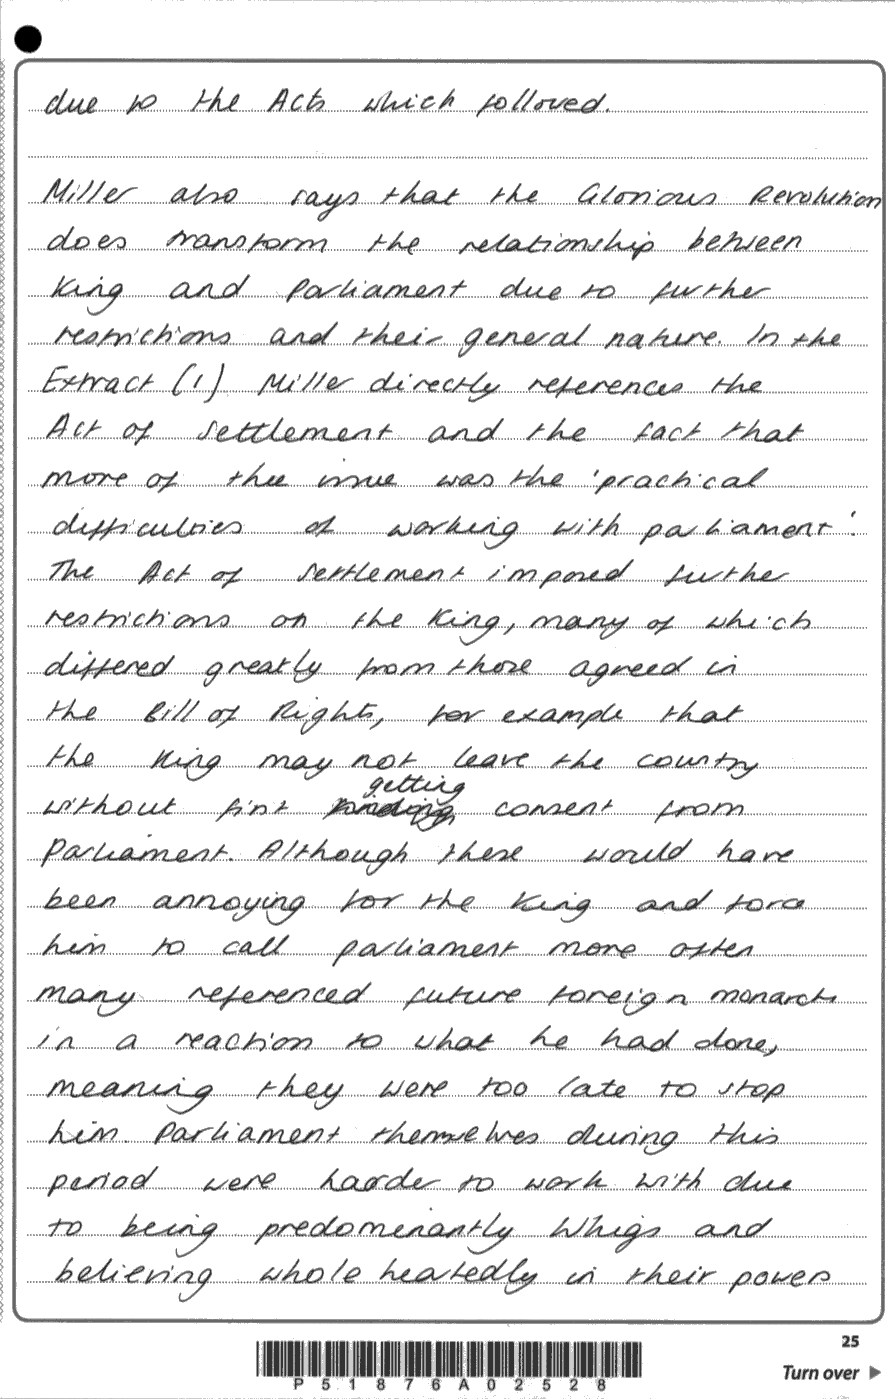 due to the Acts which followed.
Miller also says that the Glorious Revolution
does transform the relationship between
King and Parliament due to further
restrictions and their general nature. In the
Extract (1) Miller directly references the
Act of Settlement and the fact that
more of the issue was the 'practical
difficulties of working with parliament'.
The Act of Settlement imposed further
restrictions on the King, many of which
differed greatly from those agreed in
the Bill of Rights, for example that
the King may not leave the country
getting
without first consent from
Parliament. Although these would have
been annoying for the King and force
him to call parliament more often
many referenced future foreign monarchs
in a reaction to what he had done,
meaning they were too late to stop
him. Parliament themselves during this
period were harder to work with due
to being predominantly Whigs and
believing whole heartedly in their powers
25
P51876A02528
Turn over